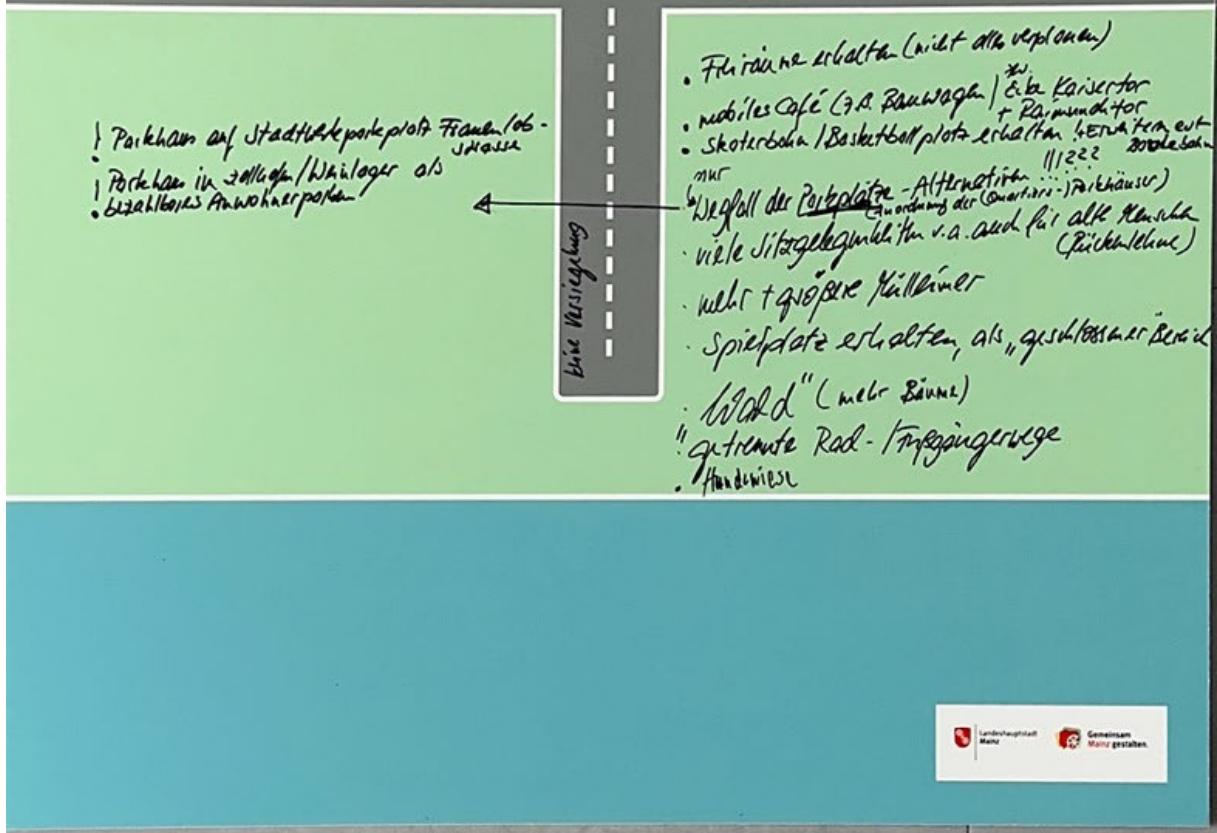 ! Parkhaus auf Stadtwerkeparkplatz Frauenlob-
strasse
! Parkhaus in Zollhafen/Weinlager als
bezahlbares Anwohnerparken
keine Versiegelung
• Freiräume erhalten (nicht alles verplanen)
• mobiles Café (z.B. Bauwagen) zw.
Ecke Kaisertor
+ Raimunditor
• Skaterbahn/Basketballplatz erhalten
nur
Wegfall der Parkplätze - Alternativen !!!???
(Anordnung der (Quartiers-)Parkhäuser)
· viele Sitzgelegenheiten v.a. auch für alte Menschen
(Rückenlehne)
· mehr + größere Mülleimer
· Spielplatz erhalten, als „geschlossener Bereich
· „Wald" (mehr Bäume)
· getrennte Rad-/Fußgängerwege
• Hundewiese
Landeshauptstadt
Mainz
Gemeinsam
Mainz gestalten.